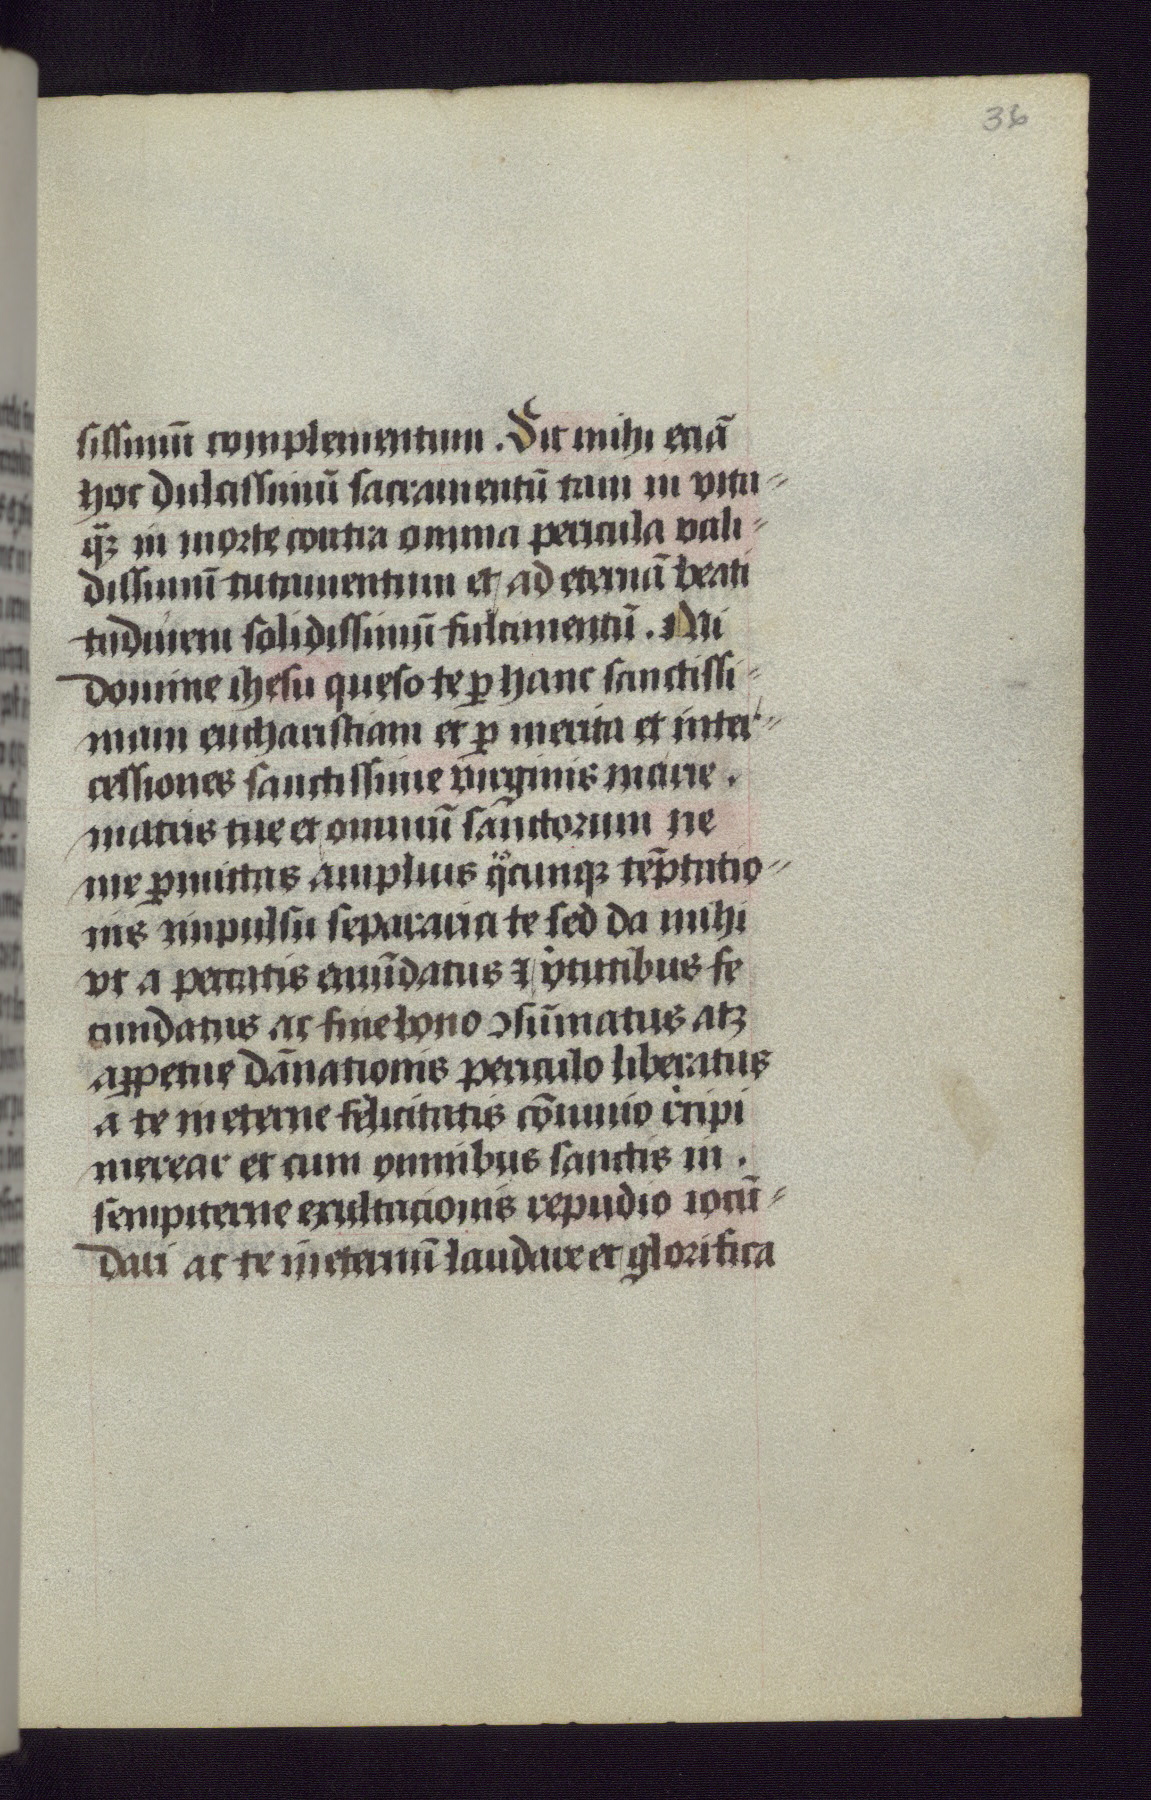 36
sissimū complementum. Sit mihi eciā
hoc dulcissimū sacramentū tam in vita-
qꝫ in morte contra omnia pericula vali-
dissimū tutamentum et ad eternā beati
tudinem solidissimū fulcimentū. Mi
domine ihesu queso te ꝑ hanc sanctissi-
mam eucharistiam et ꝑ merita et inter-
cessiones sanctissime virginis marie.
matris tue et omniū sanctorum ne
me ꝑmittas amplius qͦcunqꝫ tēptatio-
nis impulsu separari a te sed da mihi
vt a peccatis emūdatus ⁊ v̾tutibus fe
cundatus ac fine bono ꝯsūmatus atꝫ
a ꝑpetue dānationis periculo liberatus
a te in eterne felicitatis cōmunio recipi
merear et cum omnibus sanctis in.
sempiterne exultacionis repudio iocū-
dari ac te in eternū laudare et glorifica